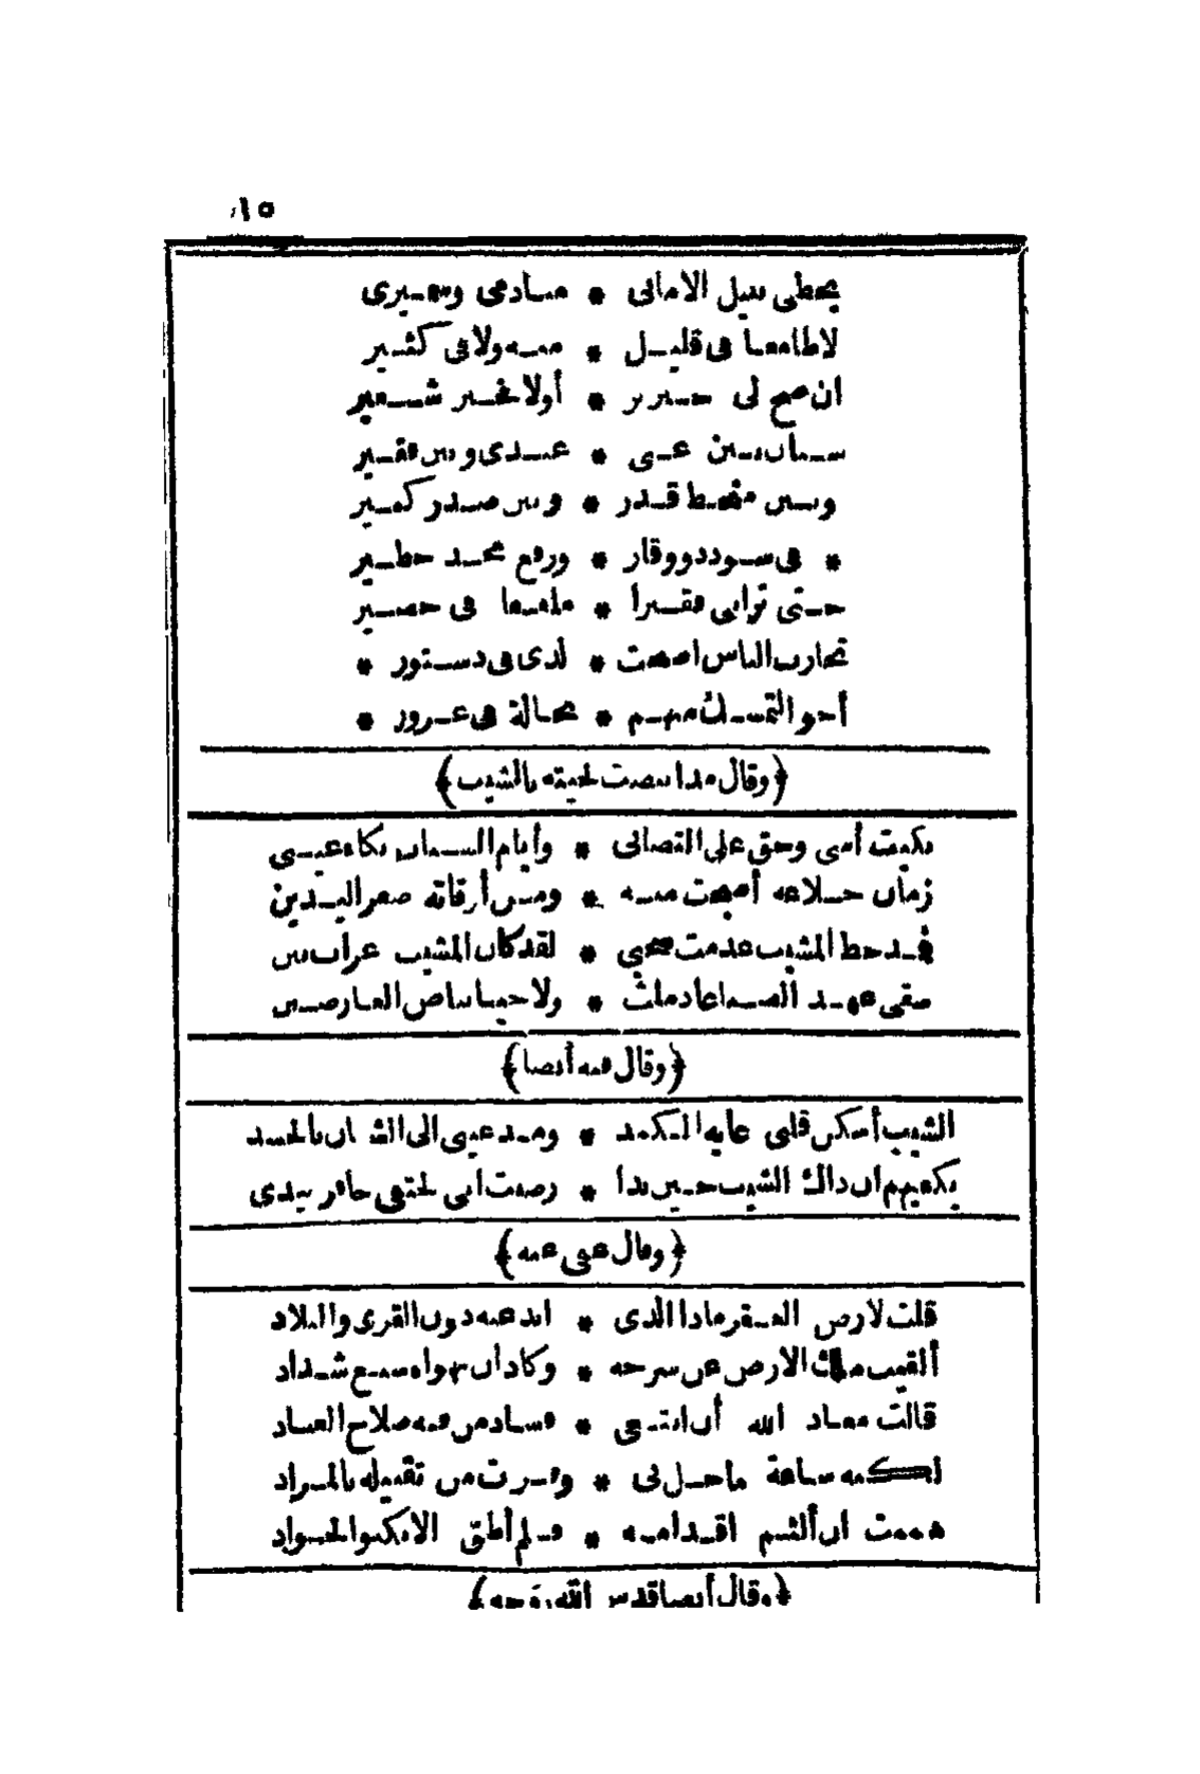 ١٥
يحظى بنيل الامانى * مسادمى وسميرى
لا طامعا فى قليل * منه ولا فى كثير
ان صح لى خبز بر * أولا فخبز شعير
سيان بين غنى * عندى وبين فقير
وبين منحط قدر * وبين صدر كبير
* فى سودد ووقار * ورفع مجد خطير
حتى ترانى فقيرا * ملفعا فى حصير
تجارب الناس أضحت * لدى فى دستور *
أخو التمسك منهم * بحالة فى غرور *
﴿وقال مذ ابيضت لحيته بالشيب﴾
بكيت أسى وحق على التصابى * وأيام الشباب بكاء عينى
زمان خلاعة أصبحت منه * ومن أوقاته صفر اليدين
فمذ حط المشيب عدمت صحبى * لقد كان المشيب غراب بين
سقى عهد الصبا عاد ملث * ولا حيا بياض العارضين
﴿وقال فيه أيضا﴾
الشيب أسكن قلبى غاية الكمد * ومد عينى الى الشبان بالحسد
يكفيهم ان ذاك الشيب حين بدا * رضيت انى لحتفى حافر بيدى
﴿وقال عفى عنه﴾
قلت لارض القفر ماذا الذى * ابدعه دون القرى والبلاد
ألقيت ملك الارض عن سرجه * وكاد أن يهواه سبع شداد
قالت معاذ الله أن ابتغى * فساد من فيه صلاح العباد
لكنه ساعة ما حل بى * وفزت من تقبيله بالمراد
هممت ان ألثم اقدامه * فلم أطق الا بكبو الجواد
﴿وقال أيضا قدس الله روحه﴾